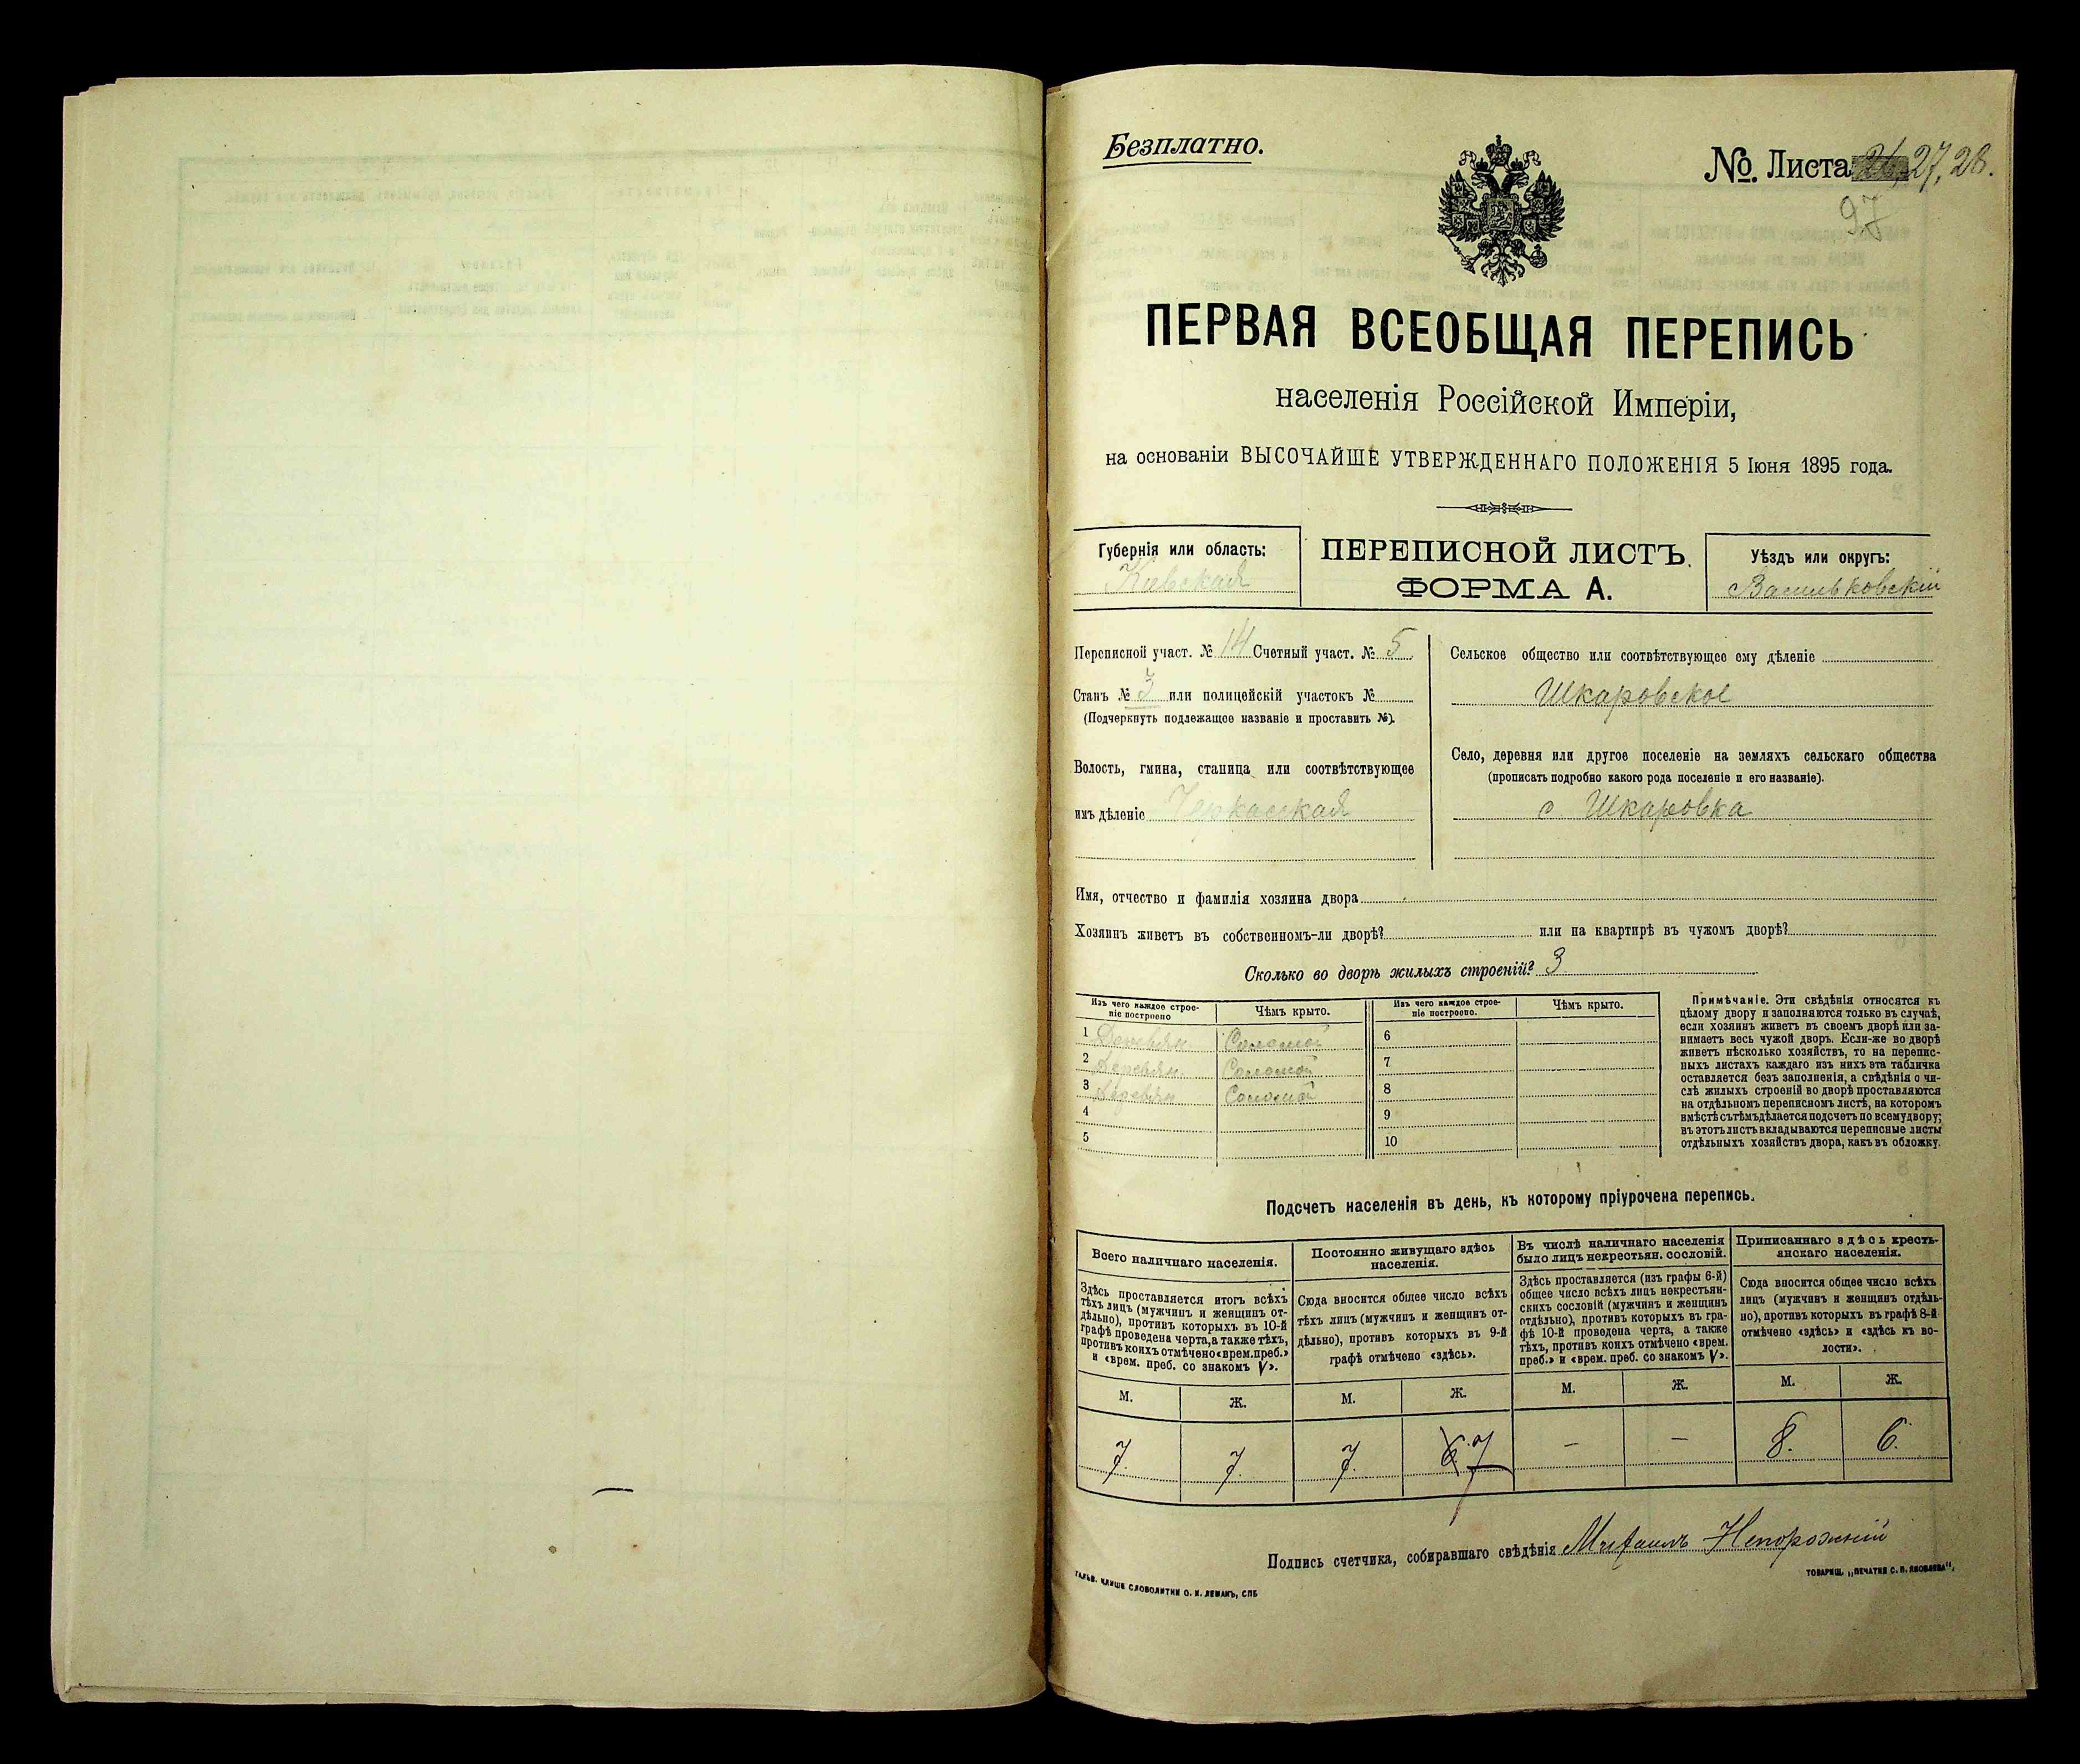 Безплатно.
№. Листа 27, 28.
97
ПЕРВАЯ ВСЕОБЩАЯ ПЕРЕПИСЬ
населенія Россійской Имперіи,
на основаніи ВЫСОЧАЙШЕ УТВЕРЖДЕННАГО ПОЛОЖЕНІЯ 5 Іюня 1895 года.
Губернія или область:
Киевская
ПЕРЕПИСНОЙ ЛИСТЪ.
ФОРМА А.
Уѣздъ или округъ:
Васильковскій
Переписной участ. № 14 Счетный участ. № 5
Станъ № 3 или полицейскій участокъ №
(Подчеркнуть подлежащее названіе и проставить №).
Волость, гмина, станица или соотвѣтствующее
имъ дѣленіе Черкасская
Сельское общество или соотвѣтствующее ему дѣленіе
Шкаровское
Село, деревня или другое поселеніе на земляхъ сельскаго общества
(прописать подробно какого рода поселеніе и его названіе).
с. Шкаровка
Имя, отчество и фамилія хозяина двора
Хозяинъ живетъ въ собственномъ-ли дворѣ? или на квартирѣ въ чужомъ дворѣ?
Сколько во дворѣ жилыхъ строеній? 3
Изъ чего каждое строе-
ніе построено
Чѣмъ крыто.
1 Деревян. Соломой
2 Деревян. Соломой
3 Деревян Соломой
4
5
Изъ чего каждое строе-
ніе построено.
Чѣмъ крыто.
6
7
8
9
10
Примѣчаніе. Эти свѣдѣнія относятся къ
цѣлому двору и заполняются только въ случаѣ,
если хозяинъ живетъ въ своемъ дворѣ или за-
нимаетъ весь чужой дворъ. Если-же во дворѣ
живетъ нѣсколько хозяйствъ, то на перепис-
ныхъ листахъ каждаго изъ нихъ эта табличка
оставляется безъ заполненія, а свѣдѣнія о чи-
слѣ жилыхъ строеній во дворѣ проставляются
на отдѣльномъ переписномъ листѣ, на которомъ
вмѣстѣ съ тѣмъ дѣлается подсчетъ по всему двору;
въ этотъ листъ вкладываются переписные листы
отдѣльныхъ хозяйствъ двора, какъ въ обложку.
Подсчетъ населенія въ день, къ которому пріурочена перепись.
Всего наличнаго населенія.
Здѣсь проставляется итогъ всѣхъ
тѣхъ лицъ (мужчинъ и женщинъ от-
дѣльно), противъ которыхъ въ 10-й
графѣ проведена черта, а также тѣхъ,
противъ коихъ отмѣчено «врем. преб.»
и «врем. преб. со знакомъ V».
М. Ж.
7. 7.
Постоянно живущаго здѣсь
населенія.
Сюда вносится общее число всѣхъ
тѣхъ лицъ (мужчинъ и женщинъ от-
дѣльно), противъ которыхъ въ 9-й
графѣ отмѣчено «здѣсь».
М. Ж.
7. 6. 7
Въ числѣ наличнаго населенія
было лицъ некрестьян. сословій.
Здѣсь проставляется (изъ графы 6-й)
общее число всѣхъ лицъ некрестьян-
скихъ сословій (мужчинъ и женщинъ
отдѣльно), противъ которыхъ въ гра-
фѣ 10-й проведена черта, а также
тѣхъ, противъ коихъ отмѣчено «врем.
преб.» и «врем. преб. со знакомъ V».
М. Ж.
— —
Приписаннаго здѣсь кресть-
янскаго населенія.
Сюда вносится общее число всѣхъ
лицъ (мужчинъ и женщинъ отдѣль-
но), противъ которыхъ въ графѣ 8-й
отмѣчено «здѣсь» и «здѣсь къ во-
лости».
М. Ж.
8. 6.
Подпись счетчика, собиравшаго свѣдѣнія Михаилъ Непорожній
ГАЛЬВ. КЛИШЕ СЛОВОЛИТНИ О. И. ЛЕМАНЪ, СПБ
ТОВАРИЩ. „ПЕЧАТНЯ С. П. ЯКОВЛЕВА".